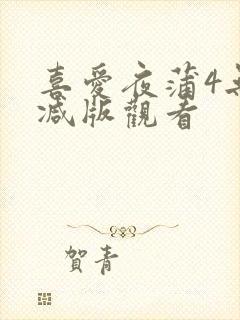 喜愛夜蒲4無
減版觀看
賀青